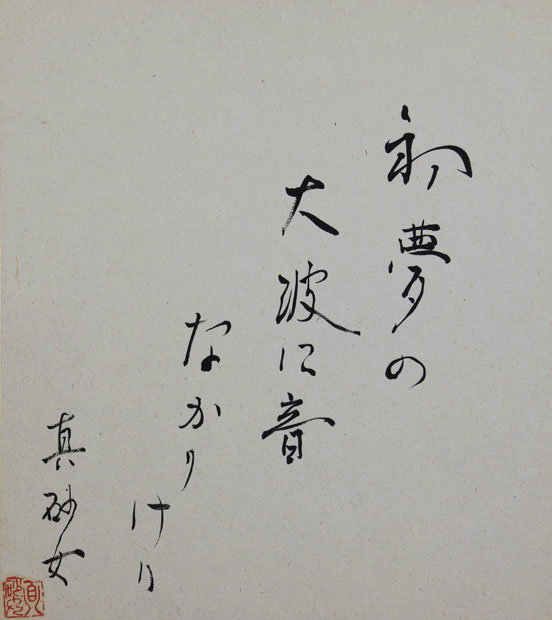 初夢の
大波に音
なかり
けり
真砂女